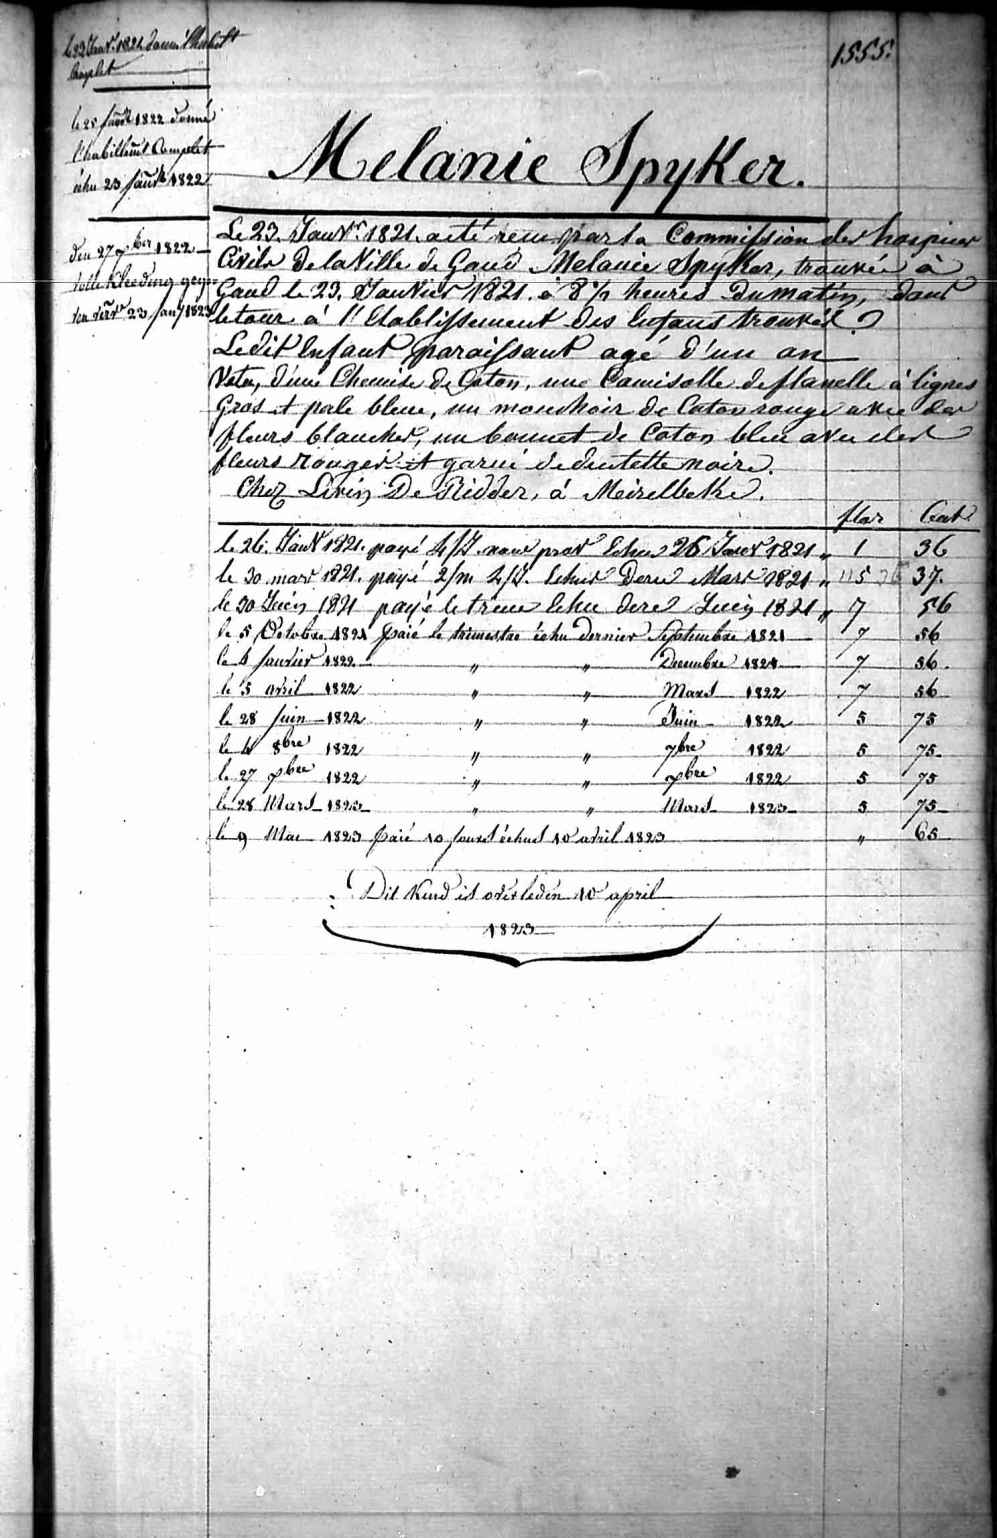 1555.
le 23 Janv. 1821 donné l'habillt
Complet
le 25 Janvr 1822 donné
l'habillemt Complet
échu 23 Janvr 1822
den 27 xber 1822
volle kleeding
23 Jany 1823
Melanie Spyker.
Le 23. Janvr. 1821. a été reçu par la Commission des hospices
Civils de la Ville de Gand Melanie Spyker, trouvée à
Gand le 23. Janvier 1821. à 8 ½ heures du matin, dans
le tour à l'Etablissement des Enfans trouvés.
Ledit Enfant paraissant agé d'un an
Vetu, d'une Chemise de Coton, une Camisolle de flanelle à lignes
Gros et pale bleue, un mouchoir de Coton rouge avec des
fleurs blanches, un bonnet de Coton bleu avec des
fleurs rouges et garni de dentelle noire.
Chez Livin De Ridder, à Meirelbeke.
flor Cent
le 26. Janvr 1821. payé 4/J. Echu 26 Janvr 1821 „ 1 36
le 30 mars 1821. payé 2/m 4/J. Echus Dern Mars 1821 „ 5 37.
le 30 Juin 1821 payé le trime Echu dern Juin 1821 „ 7 56
le 5 Octobre 1821 Paié le trimestre échu dernier Septembre 1821 7 56
le 4 Janvier 1822 „ „ Decembre 1821 7 56.
le 5 avril 1822 „ „ Mars 1822 7 56
le 28 Juin 1822 „ „ Juin 1822 5 75
le 4 8bre 1822 „ „ 7bre 1822 5 75
le 27 xbre 1822 „ „ xbre 1822 5 75
le 28 Mars 1823 „ „ Mars 1823 5 75
le 9 Mai 1823 Paié 10 Jours échus 10 avril 1823 „ 65
Dit Kind is overleden 10 april
1823